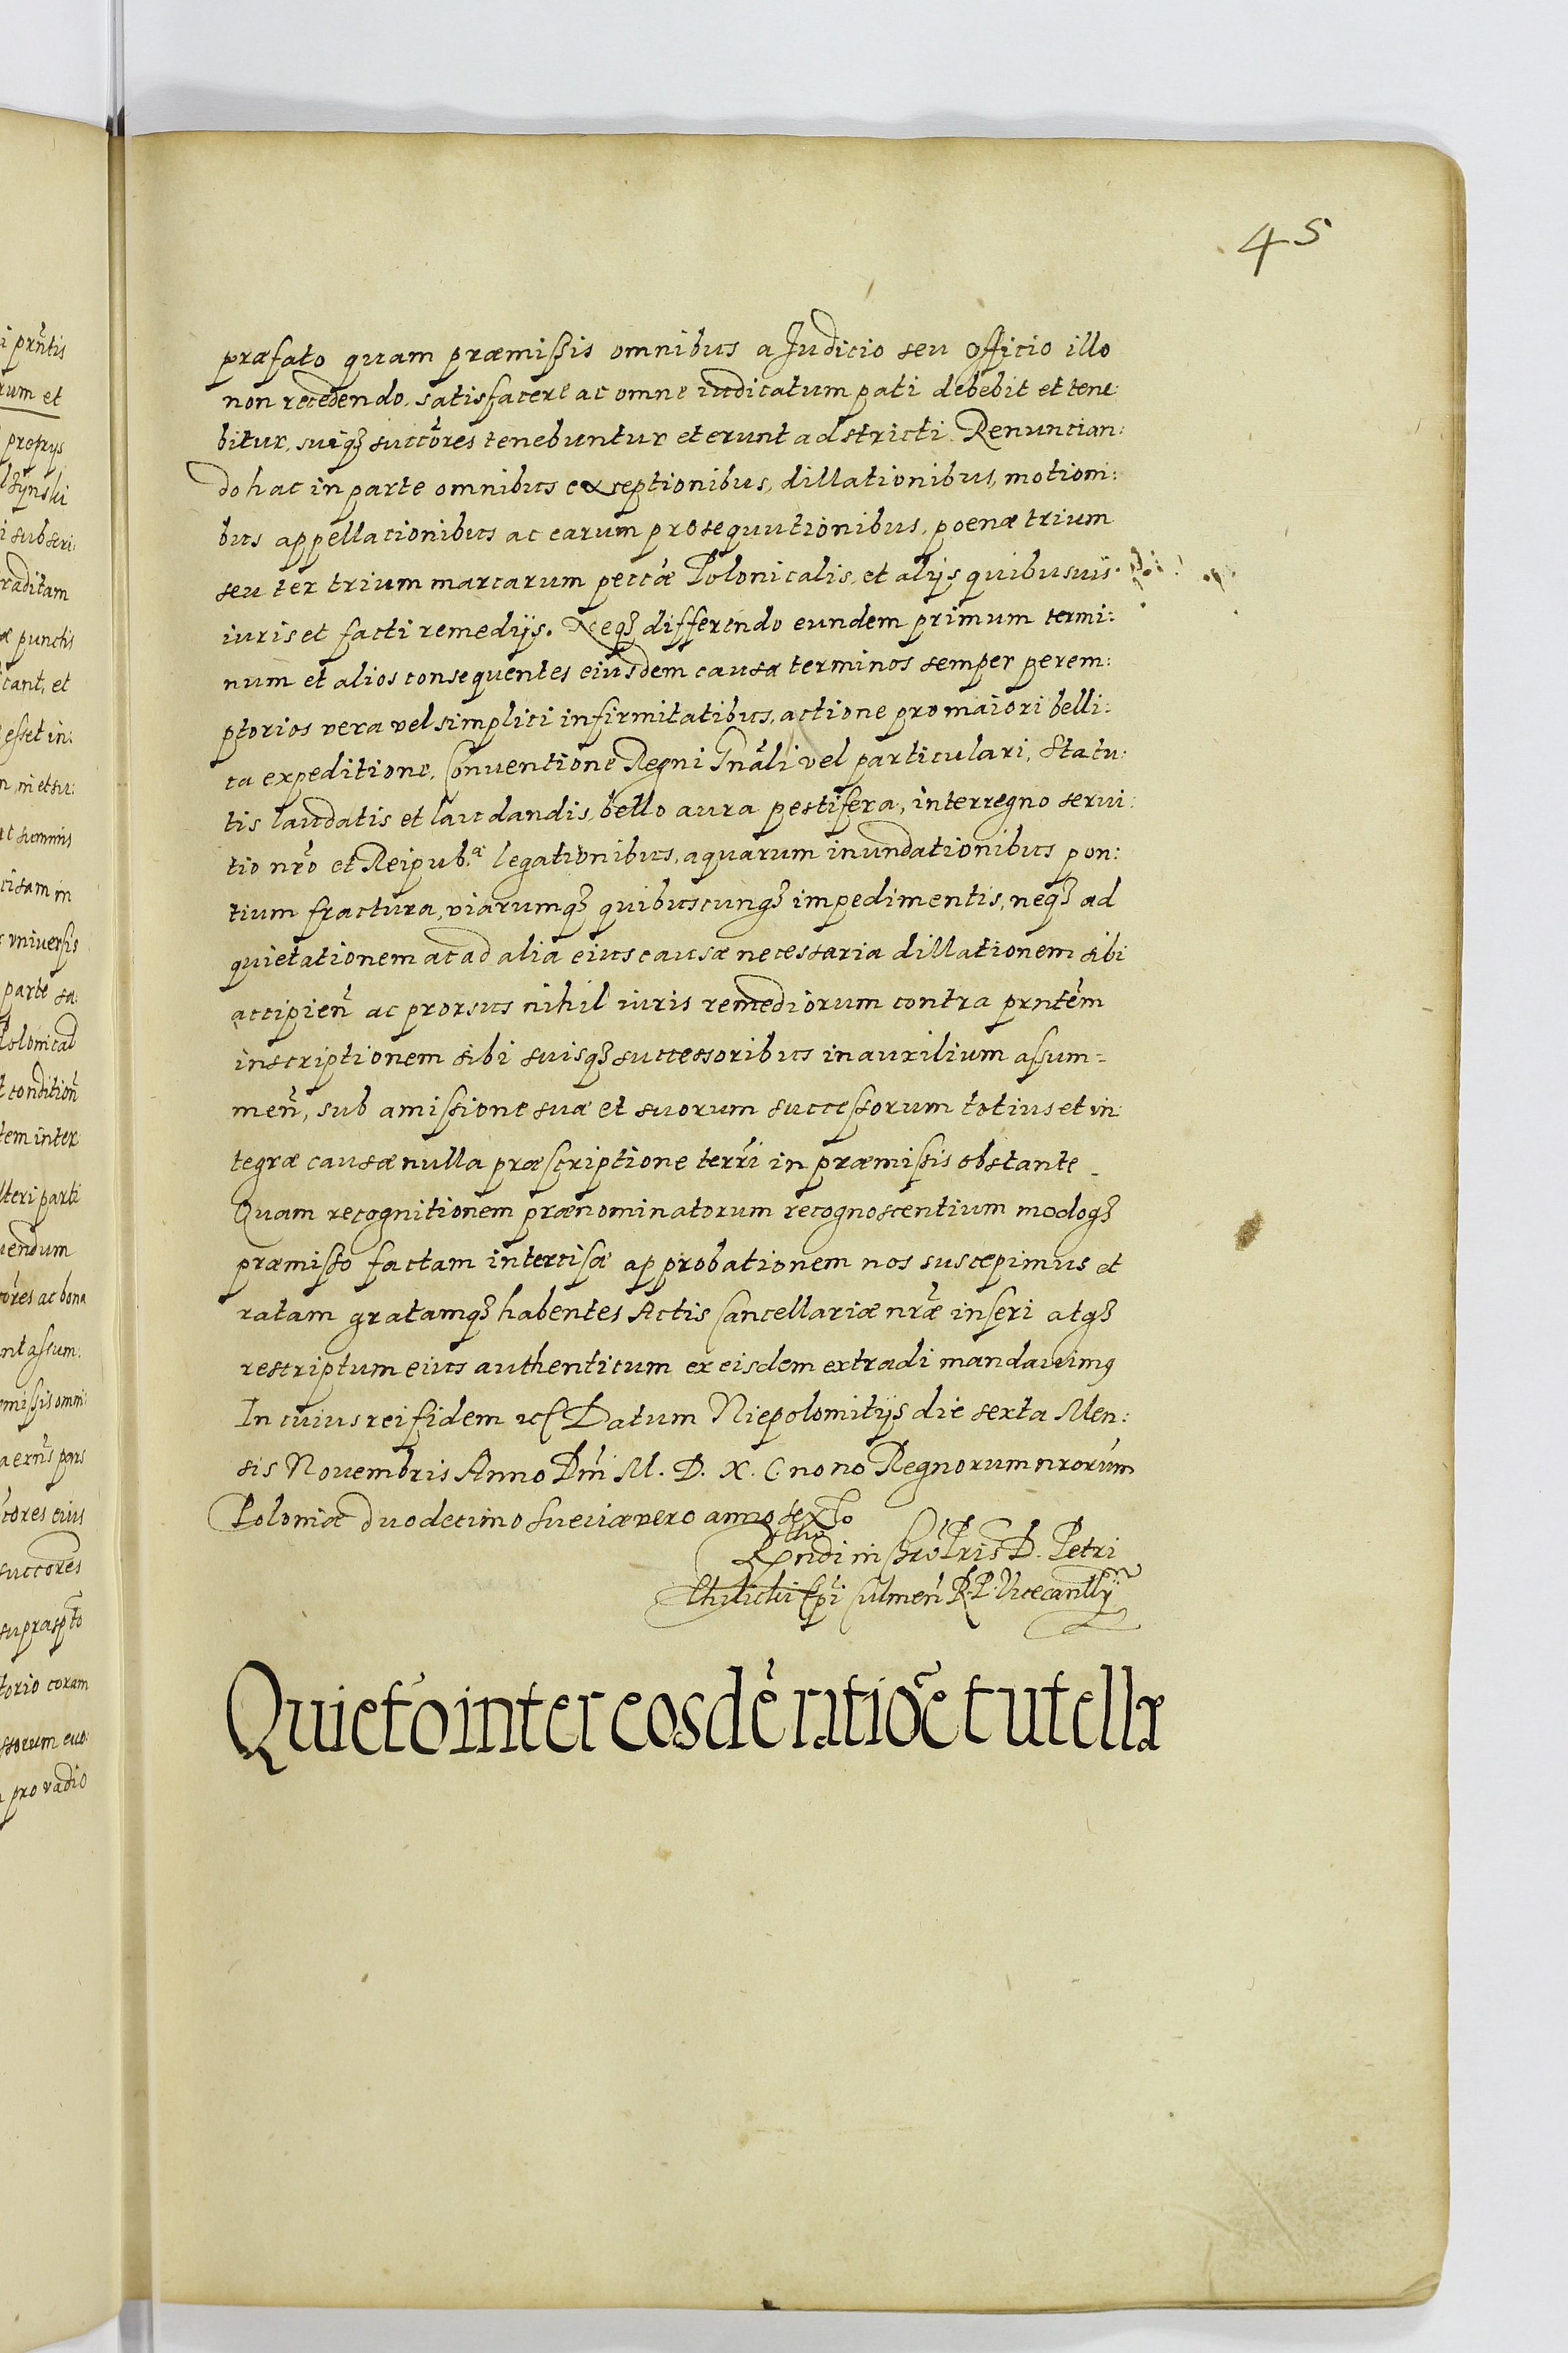 45
præfato quam præmißis omnibus a Judicio seu officio illo
non recedendo, satisfacere ac omne iudicatum pati debebit et tene:
bitur, suiqȝ succr̃ores tenebuntur et erunt adstricti. Renuncian:
do hac in parte omnibus exceptionibus, dillationibus, motioni:
bus appellationibus ac earum prosequutionibus, poenæ trium
seu ter trium marcarum peccæ Polonicalis, et alijs quibusuis
iuris et facti remedijs. Neqȝ differendo eundem primum termi:
num et alios consequentes eiusdem causæ terminos semper perem:
ptorios vera vel simplici infirmitatibus, actione pro maiori belli:
ca expeditione, Conuentione Regni Gnãli vel particulari, Statu:
tis laudatis et laudandis, bello aura pestifera, interregno serui:
tio nr̃o et Reipub.æ legationibus, aquarum inundationibus pon:
tium fractura, viarumqȝ quibuscunqȝ impedimentis, neqȝ ad
quietationem ac ad alia eius causæ necessaria dillationem sibi
accipien̄ ac prorsus nihil iuris remediorum contra prntẽm
inscriptionem sibi suisqȝ successoribus in auxilium assum=
men̄, sub amißione suæ et suorum succeßorum totius et in:
tegræ causæ nulla præscriptione terr̃i in præmißis obstante_
Quam recognitionem prænominatorum recognoscentium modoqȝ
præmißo factam intercisæ approbationem nos suscepimus et
ratam gratamqȝ habentes Actis Cancellariæ nr̃æ inseri atqȝ
rescriptum eius authenticum ex eisdem extradi mandauimꝯ
In cuius rei fidem etc Datum Niepolomitijs die sexta Men:
sis Nouembris Anno Dn̄i M. D. X. C. nono Regnorum nrorũm
Poloniæ duodecimo Sueciæ vero anno sexto
Rndi in Chrõ Pris D. Petri
Tilicki Epĩ Culmen̄ R. P. Vicecancllȳ
Quietõ inter eosdẽ ratiõe tutellæ
i prñtis
rum et
proprijs
i subscri:
raditam
æ punctis
cant, et
esset in:
ac summis
cisam in
vniuersis
parte sa:
Polonical
conditioñ
tem inter
lteri parti
uendum
ores ac bona
nt assum:
mißis omni:
tores eius
succores
supraspto
torio coram
ssorum euo:
pro vadio